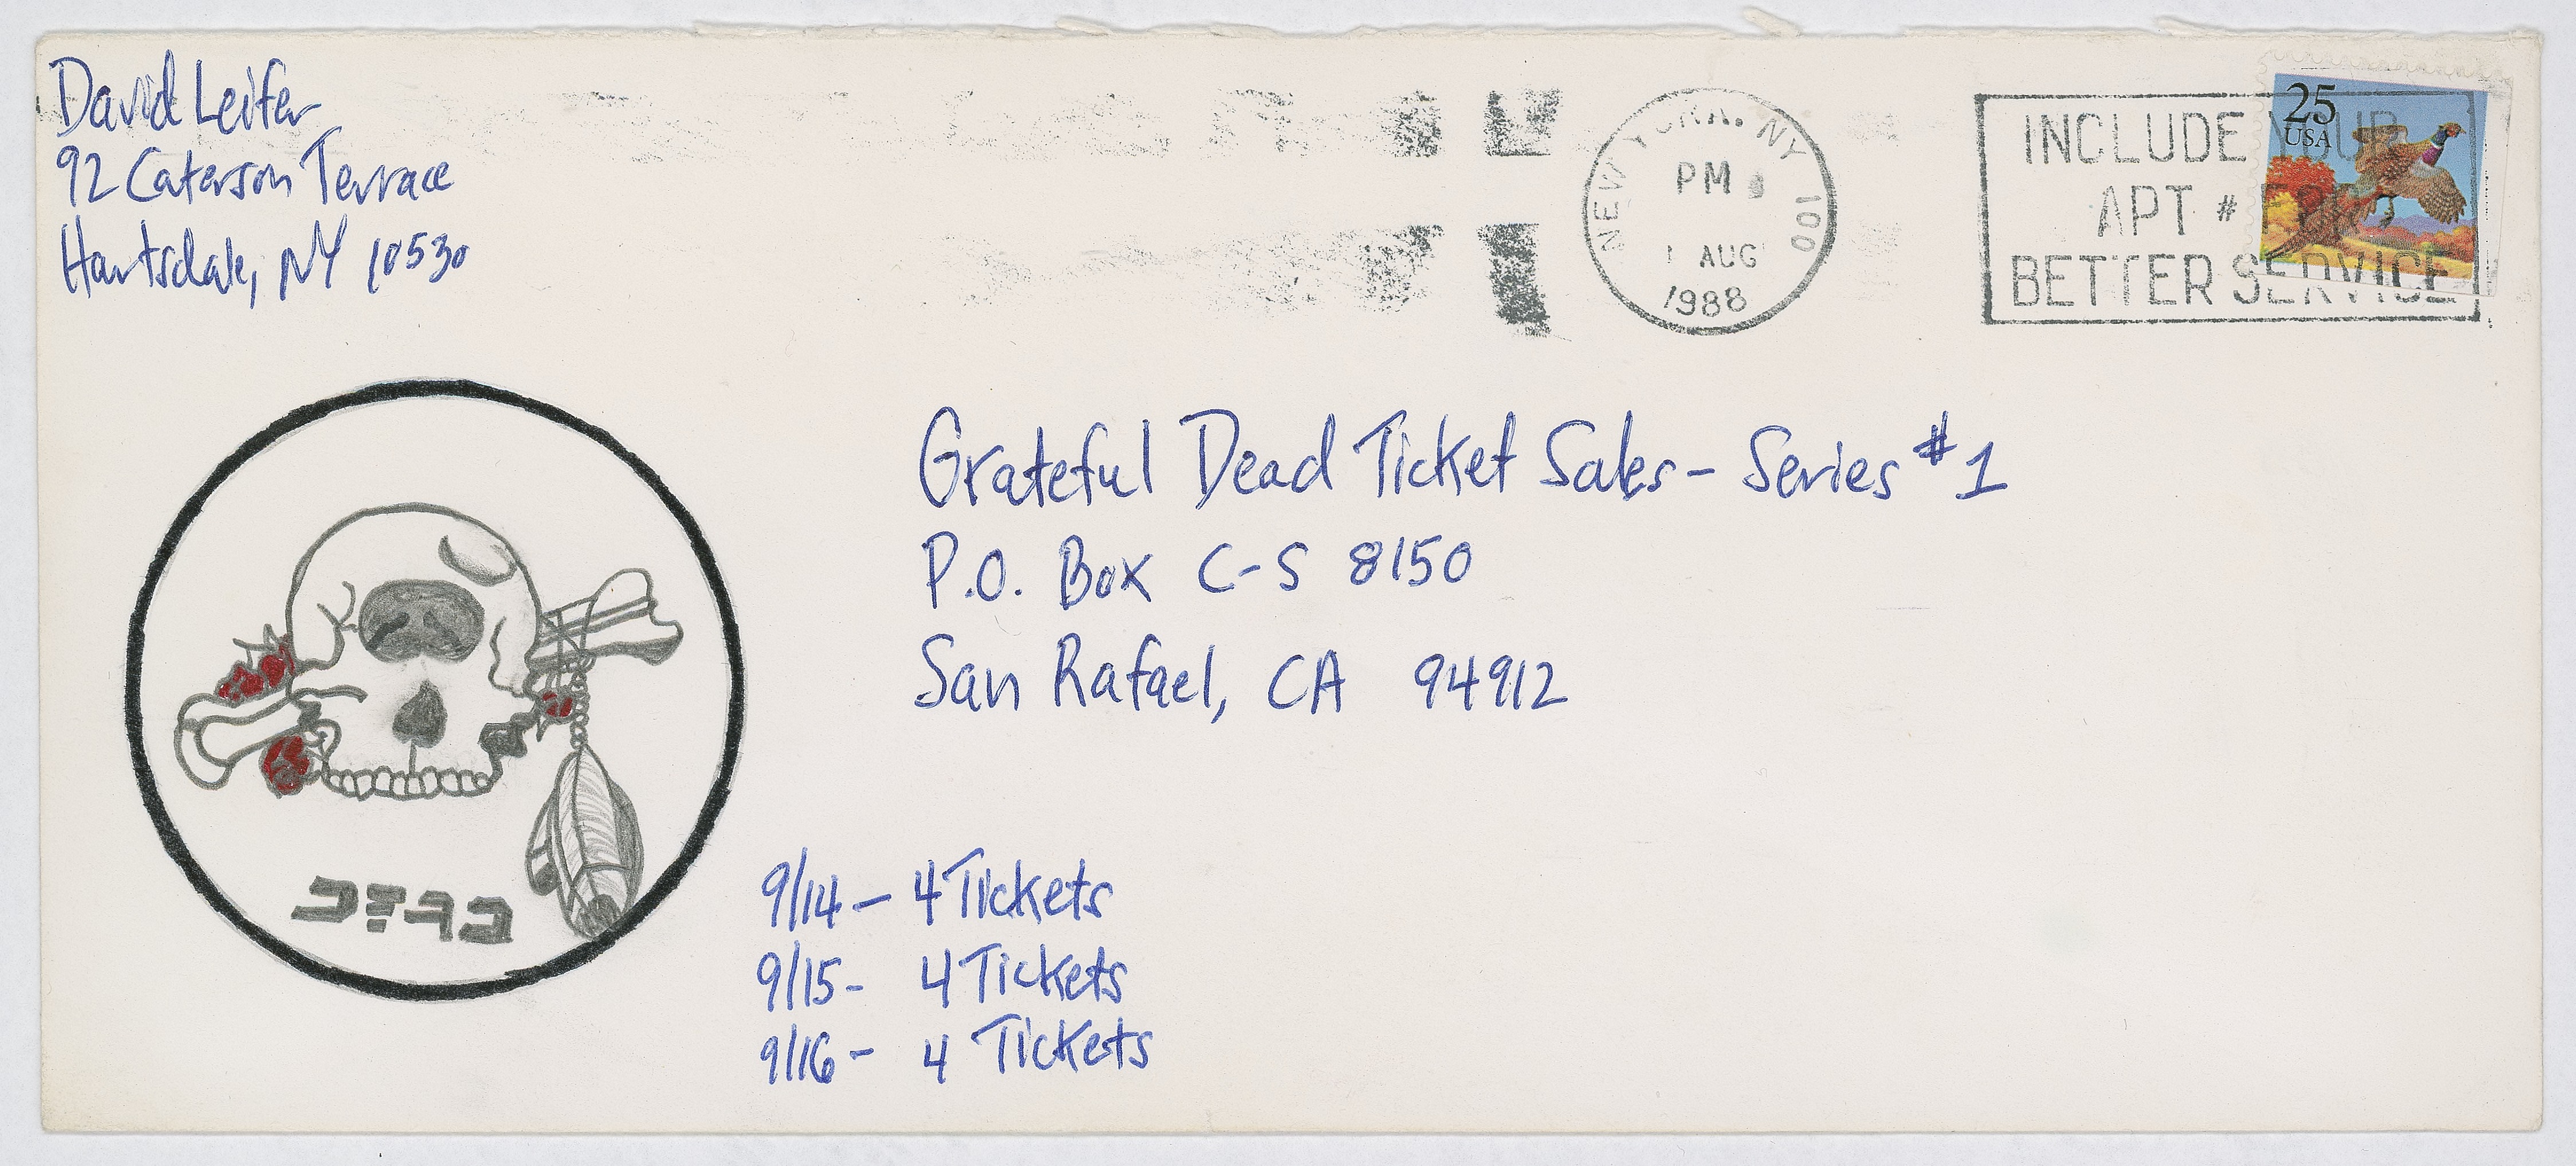 David Leifer
92 Caterson Terrace
Hartsdale, NY 10530
NEW YORK, NY 100
PM
1 AUG
1988
INCLUDE YOUR
APT # FOR
BETTER SERVICE
25
USA
Grateful Dead Ticket Sales - Series #1
P.O. Box C-S 8150
San Rafael, CA 94912
9/14 - 4 Tickets
9/15 - 4 Tickets
9/16 - 4 Tickets